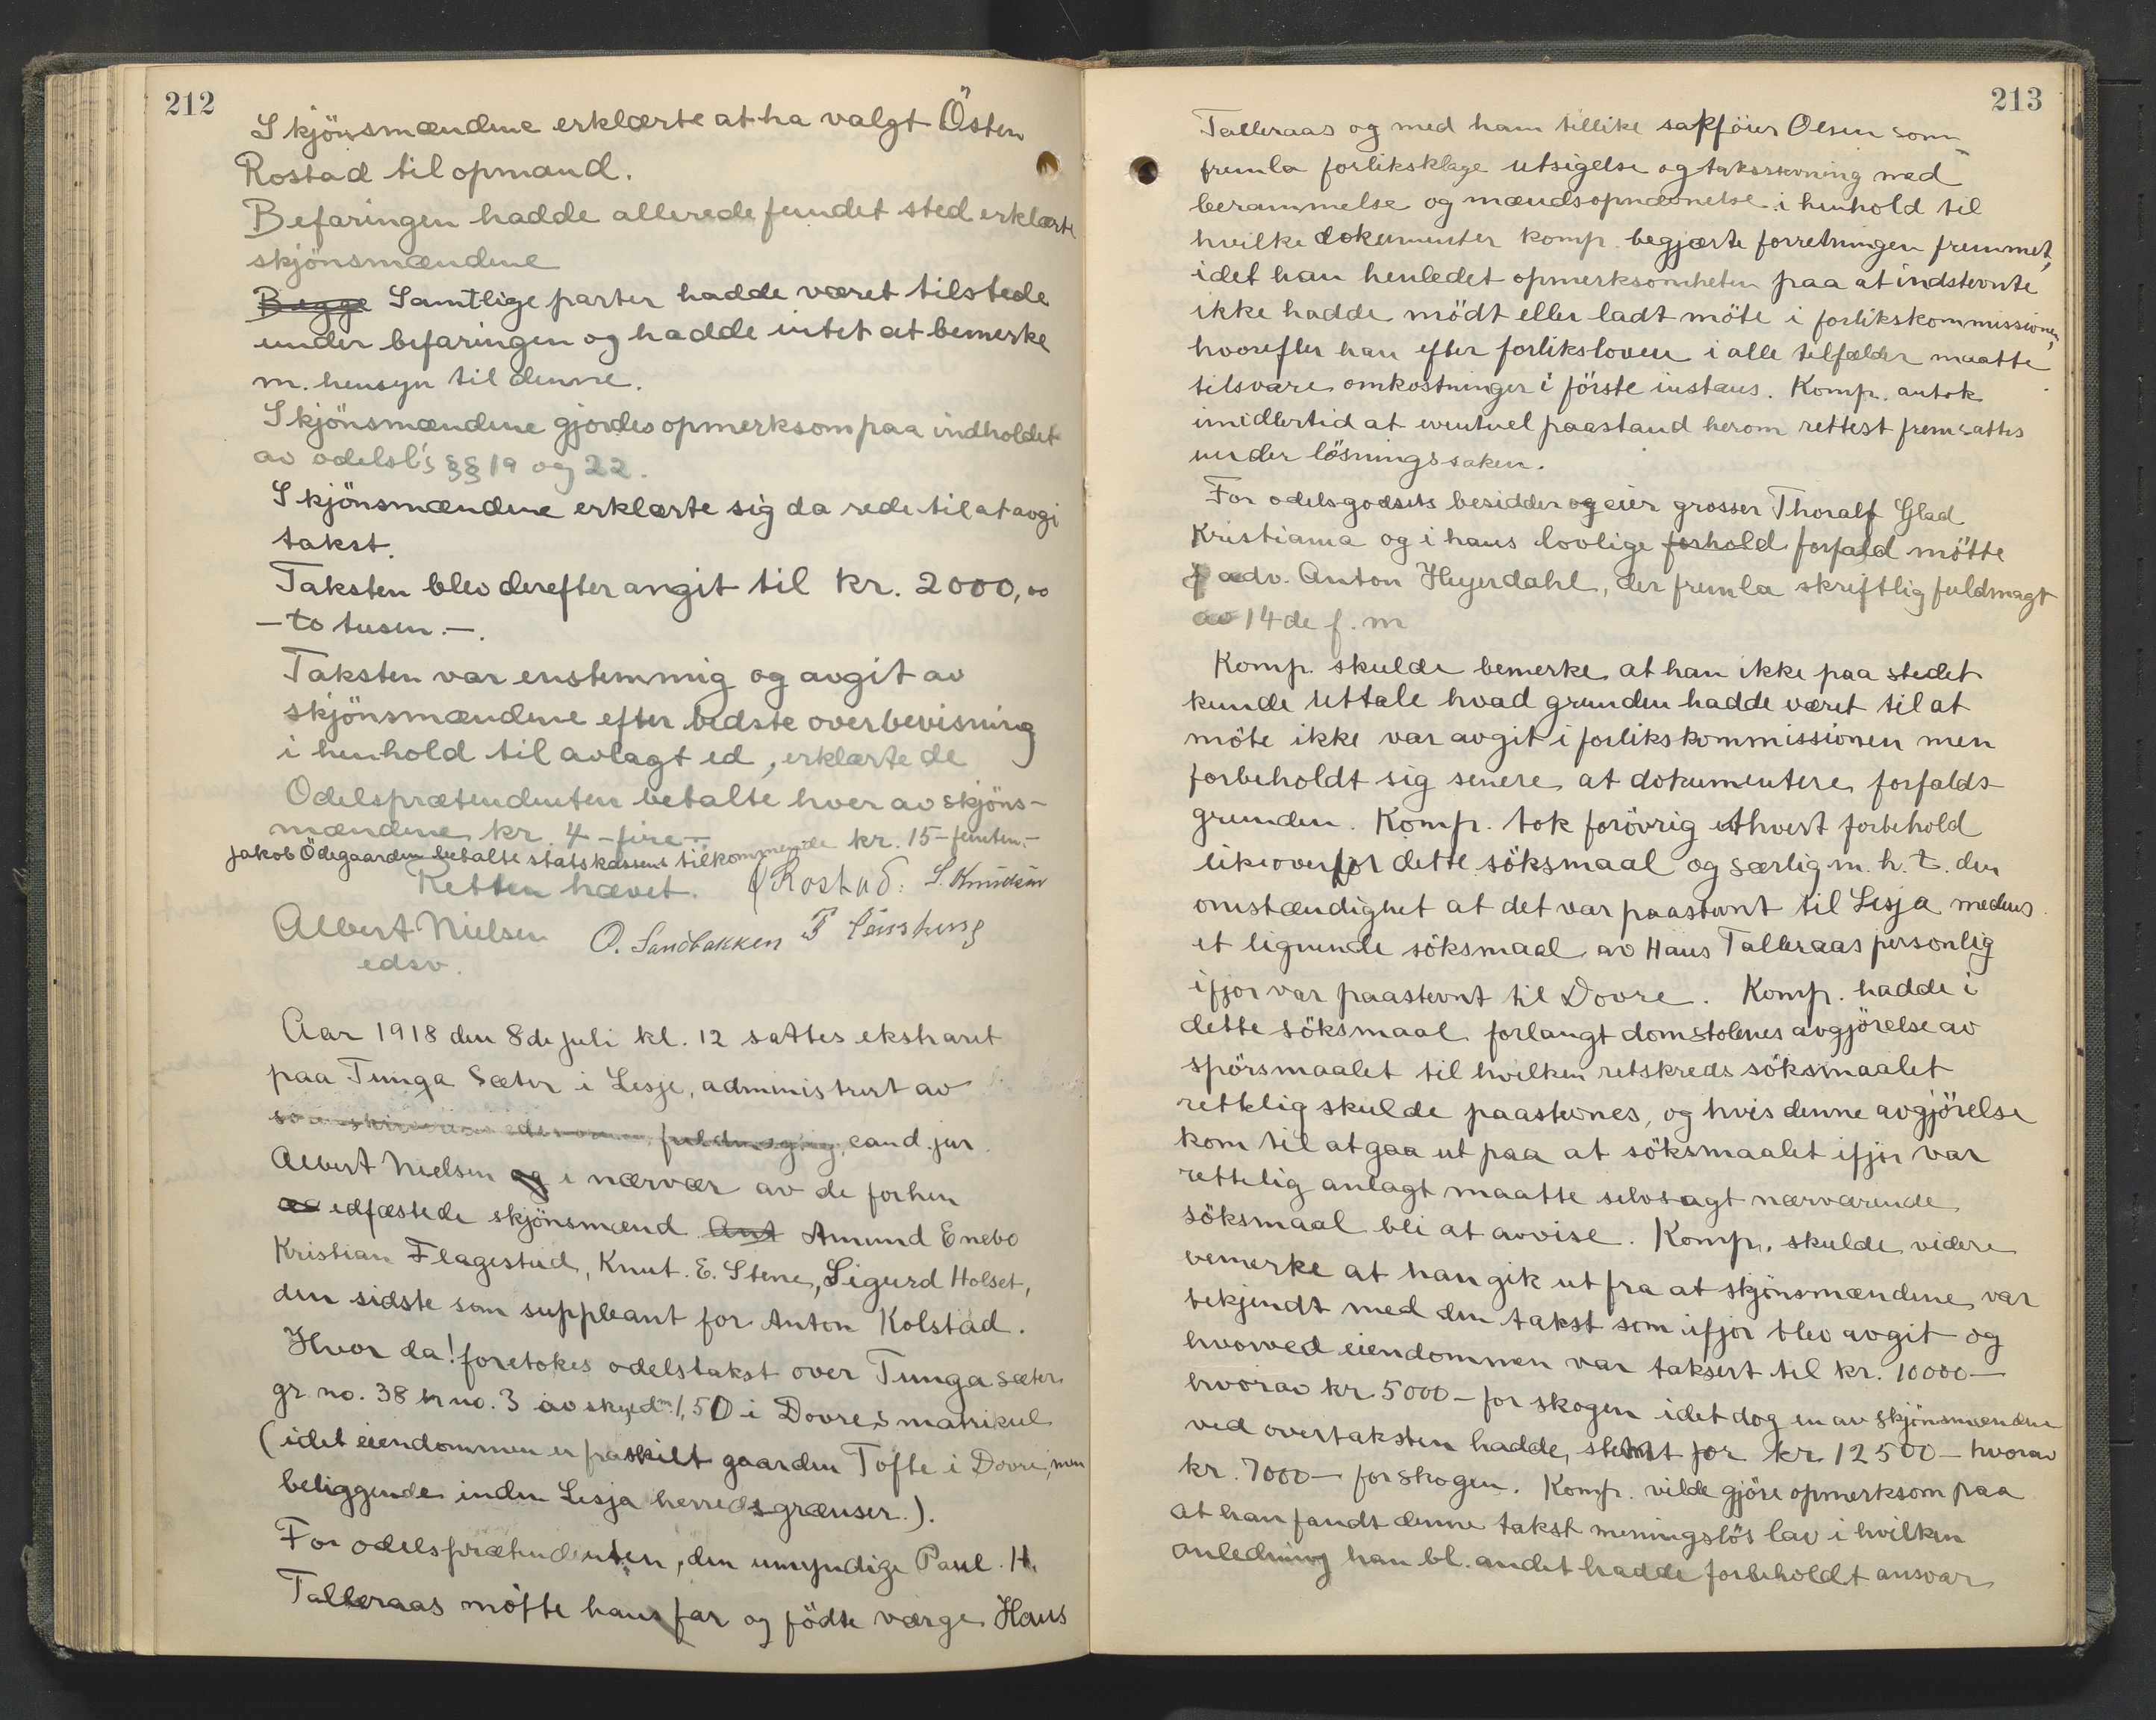 212
Skjönsmændene erklærte at ha valgt Östen
Rostad til opmand.
Befaringen hadde allerede fundet sted erklærte
skjönsmændene
Begge Samtlige parter hadde været tilstede
under befaringen og hadde intet at bemerke
m. hensyn til denne.
Skjönsmændene gjordes opmerksom paa indholdet
av odelsl's §§ 19 og 22.
Skjönsmændene erklærte sig da rede til at avgi
takst.
Taksten blev derefter angit til kr. 2000,00
- to tusen. -.
Taksten var enstemmig og avgit av
skjönsmændene efter bedste overbevisning
i henhold til avlagt ed, erklærte de
Odelsprætendenten betalte hver av skjöns-
mændene kr. 4 - fire -
Jakob Ödegaarden betalte statskassens tilkommende kr. 15 - femten. -
Retten hævet. Ö Rostad. S. Knudsen
Albert Nielsen O. Sandbakken P
edsv.
Aar 1918 den 8de juli kl. 12 sattes ekstraret
paa Tunga Sæter i Lesje, administrert av
fuldmægtig, cand. jur.
Albert Nielsen og i nærvær av de forhen
edfæstede skjönsmænd Ant Amund Enebo
Kristian Flagestad, Knut. E. Stene, Sigurd Holset,
den sidste som suppleant for Anton Kolstad.
Hvor da! foretokes odelstakst over Tunga sæter
gr. no. 38 br no. 3 av skyldm. 1,50 i Dovre's matrikul
(idet eiendommen er fraskilt gaarden Tofte i Dovre, men
beliggende inden Lesja herredsgrænser.).
For odelsprætendenten, den umyndige Paul. H.
Talleraas mötte hans far og födte værge Hans
213
Talleraas og med ham tillike sakförer Olsen som
fremla forliksklage utsigelse og takstevning med
berammelse og mændsopnævnelse i henhold til
hvilke dokumenter komp. begjærte forretningen fremmet,
idet han henledet opmerksomheten paa at indstevnte
ikke hadde mödt eller ladt möte i forlikskommissionen,
hvorefter han efter forliksloven i alle tilfælder maatte
tilsvare omkostninger i förste instans. Komp. antok
imidlertid at eventuel paastand herom rettest fremsattes
under lösningssaken.
For odelsgodsets besidder og eier grosser Thoralf Glad
Kristiania og i hans lovlige forhold forfald mötte
adv. Anton Heyerdahl, der fremla skriftlig fuldmagt
av 14de f. m
Komp. skulde bemerke at han ikke paa stedet
kunde uttale hvad grunden hadde været til at
möte ikke var avgit i forlikskommissionen men
forbeholdt sig senere at dokumentere forfalds-
grunden. Komp. tok forövrig ethvert forbehold
likeoverfor dette söksmaal og særlig m. h. t. den
omstændighet at det var paastevnt til Lesja medens
et lignende söksmaal av Hans Talleraas personlig
ifjor var paastevnt til Dovre. Komp. hadde i
dette söksmaal forlangt domstolenes avgjörelse av
spörsmaalet til hvilken retskreds söksmaalet
rettelig skulde paastevnes, og hvis denne avgjörelse
kom til at gaa ut paa at söksmaalet ifjor var
rettelig anlagt maatte selvsagt nærværende
söksmaal bli at avvise. Komp. skulde videre
bemerke at han gik ut fra at skjönsmændene var
bekjendt med den takst som ifjor blev avgit og
hvorved eiendommen var taksert til kr. 10000 -
hvorav kr 5000 - for skogen idet dog en av skjönsmændene
ved overtaksten hadde stemt for kr 12500 - hvorav
kr. 7000 - for skogen. Komp. vilde gjöre opmerksom paa
at han fandt denne takst meningslös lav i hvilken
anledning han bl. andet hadde forbeholdt ansvar